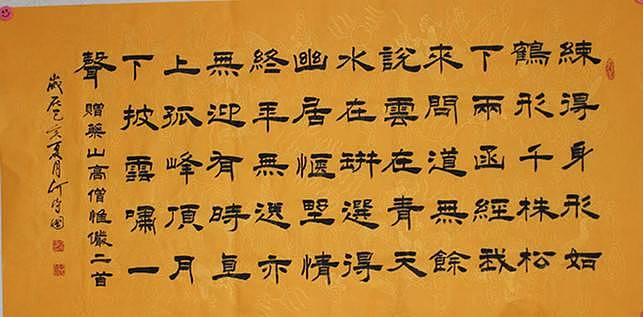 練得身形如
鶴形千株松
下兩函經我
來問道無餘
說雲在青天
水在缾選得
幽居愜埜情
終年無送亦
無迎有時直
上孤峰頂月
下披雲嘯一
聲
贈藥山高僧惟儼二首
歲在己亥夏月